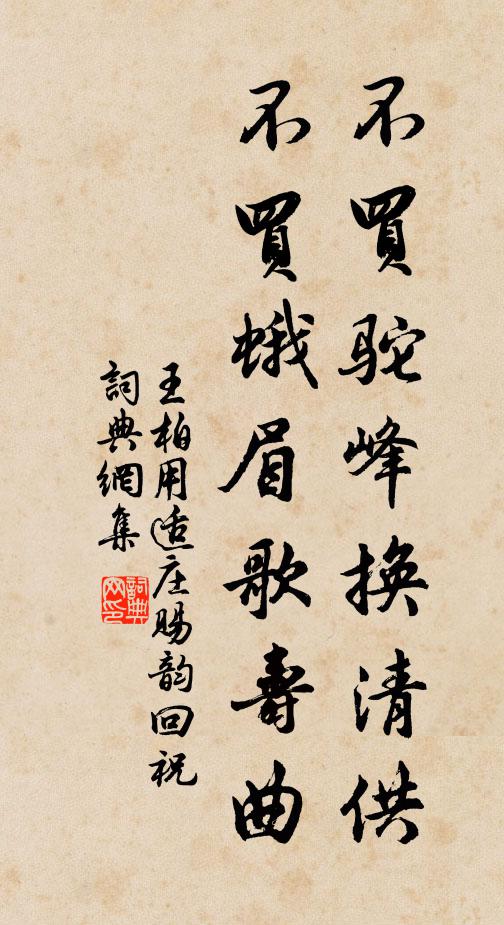 不買駝峰換清供
不買蛾眉歌壽曲
王柏用适庄賜韵回祝
詞典網集
詞典
网印